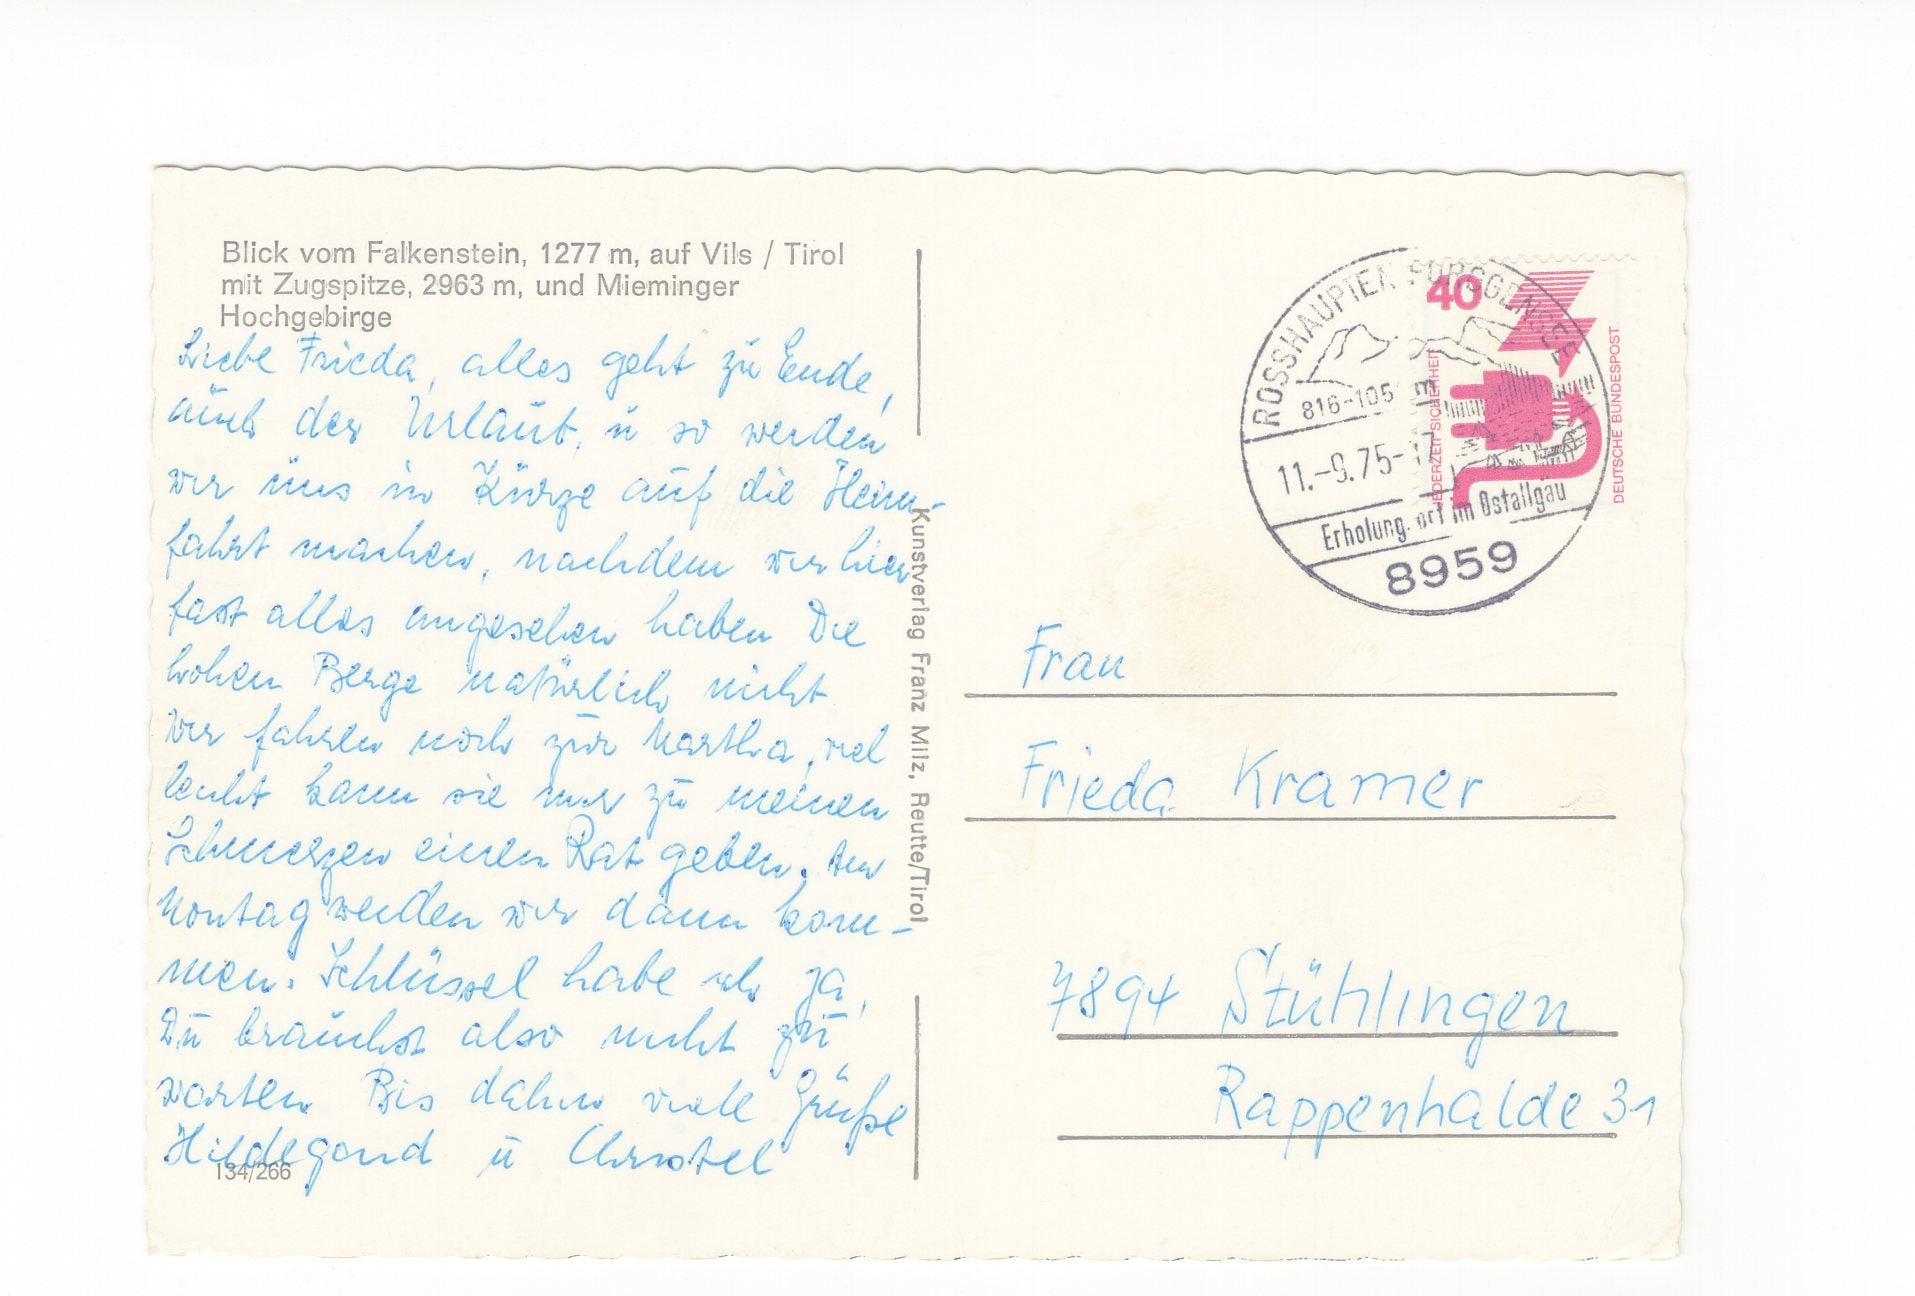 Blick vom Falkenstein, 1277 m, auf Vils / Tirol
mit Zugspitze, 2963 m, und Mieminger
Hochgebirge
Liebe Frieda, alles geht zu Ende,
auch der Urlaub, u so werden
wir uns in Kürze auf die Heim-
fahrt machen, nachdem wir hier
fast alles angesehen haben Die
hohen Berge natürlich nicht
Wir fahren noch zur Martha, viel
leicht kann sie mir zu meinen
Schmerzen einen Rat geben. Am
Montag werden wir dann kom-
men. Schlüssel habe ich ja,
Du brauchst also nicht zu
warten. Bis dahin viele Grüße
Hildegard u Christel
134/266
Kunstverlag Franz Milz, Reutte/Tirol
ROSSHAUPTEN FORGGENSEE
816-105 m
11.-9.75-17
Erholungsort im Ostallgäu
8959
40
JEDERZEIT SICHERHEIT
DEUTSCHE BUNDESPOST
Frau
Frieda Kramer
7894 Stühlingen
Rappenhalde 31